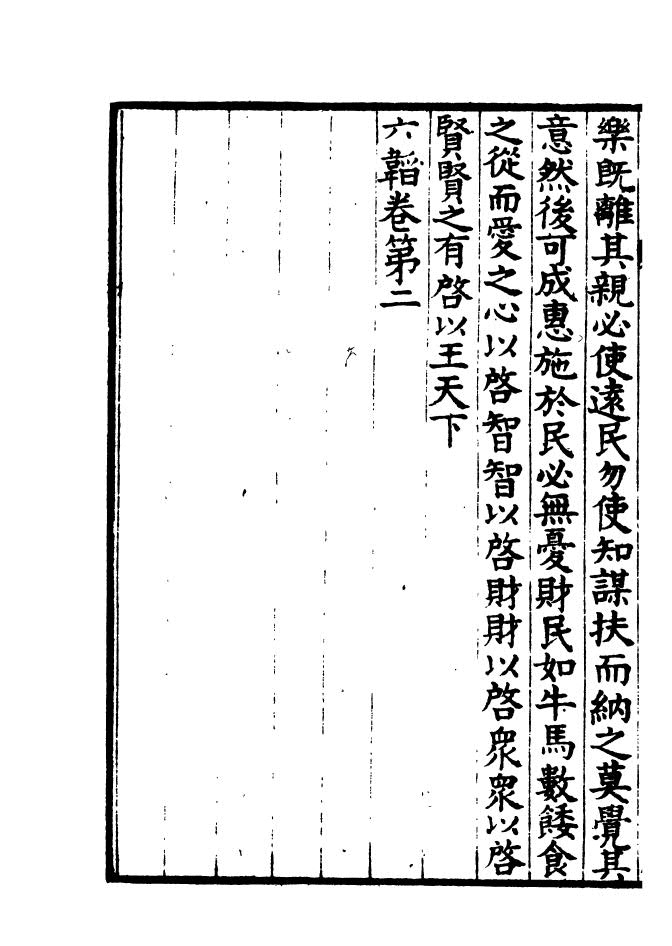 樂既離其親必使逺民勿使知謀扶而納之莫覺其
意然後可成惠施於民必無憂財民如牛馬數餧食
之從而愛之心以啓智智以啓財財以啓眾眾以啓
賢賢之有啓以王天下
六韜卷第二